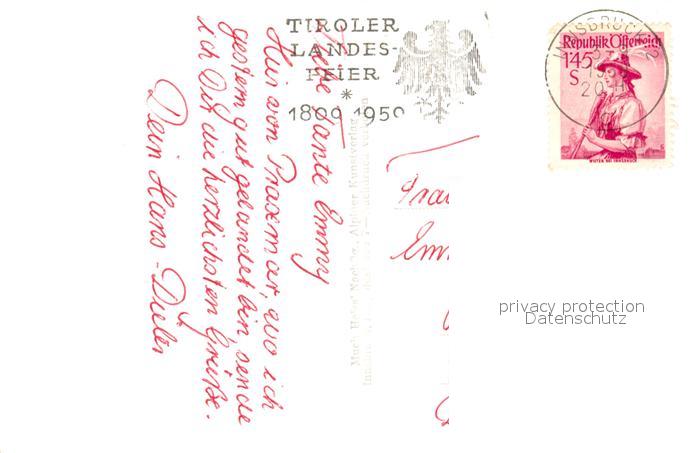 TIROLER
LANDES-
FEIER
*
1809 1959
INNSBRUCK
Republik Österreich
1'45
S
WILTEN BEI INNSBRUCK
Liebe Tante Emmy
Hier von Praxmar, wo ich
gestern gut gelandet bin, sende
ich Dir die herzlichsten Grüße.
Dein Hans-Dieter
Alpiner Kunstverlag
Frau
Em
privacy protection
Datenschutz